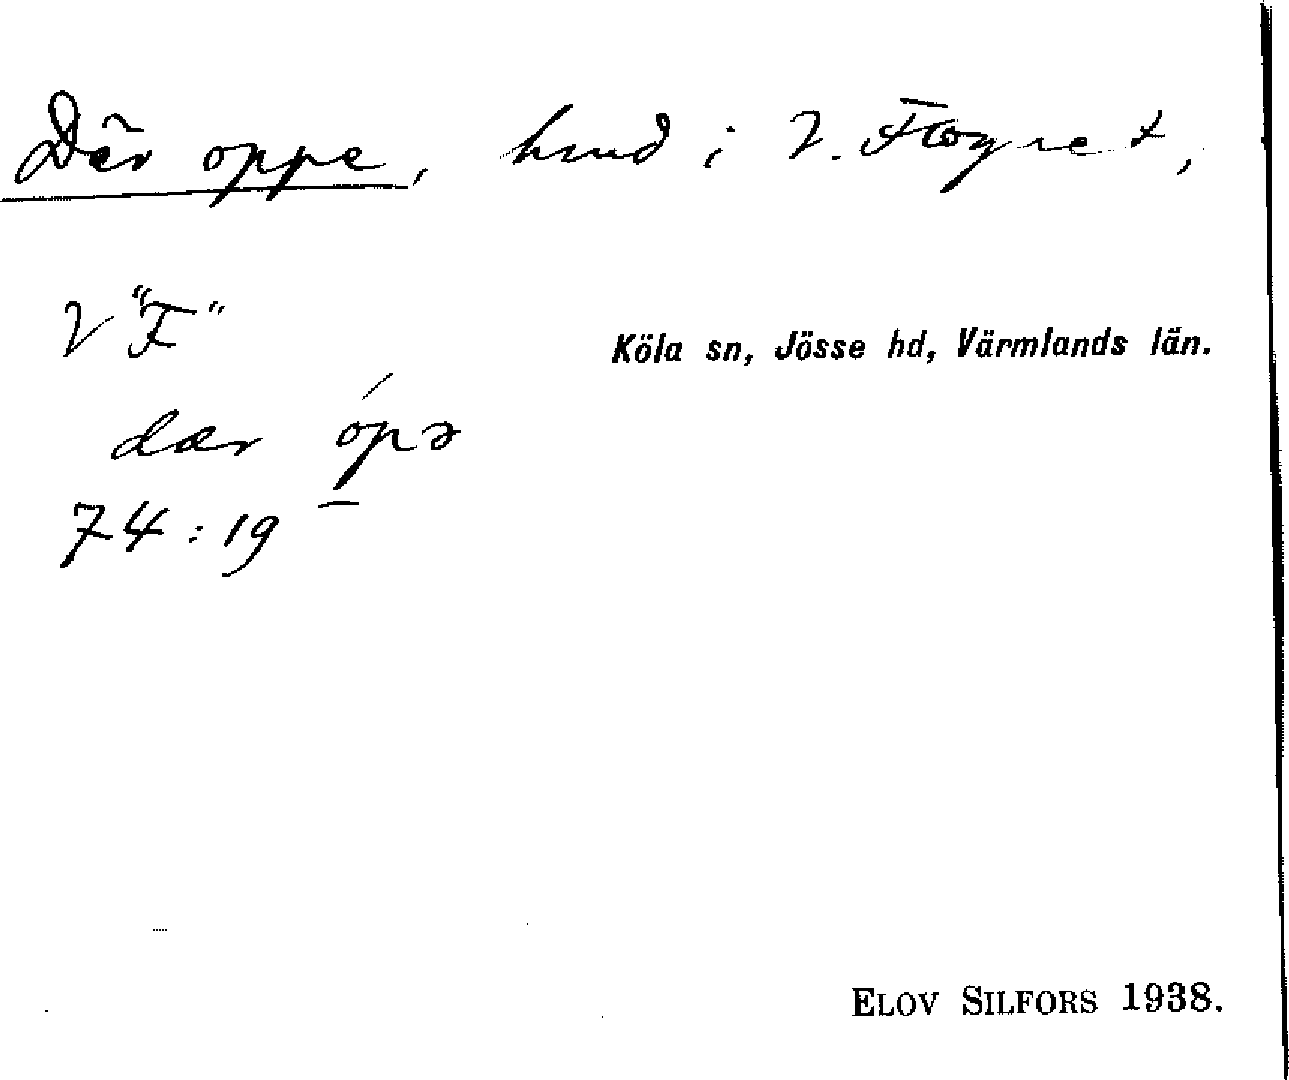 Där oppe, hmd i V. Flognet,
V "F"
Köla sn, Jösse hd, Värmlands län.
dær ópə
74:19
ELOV SILFORS 1938.